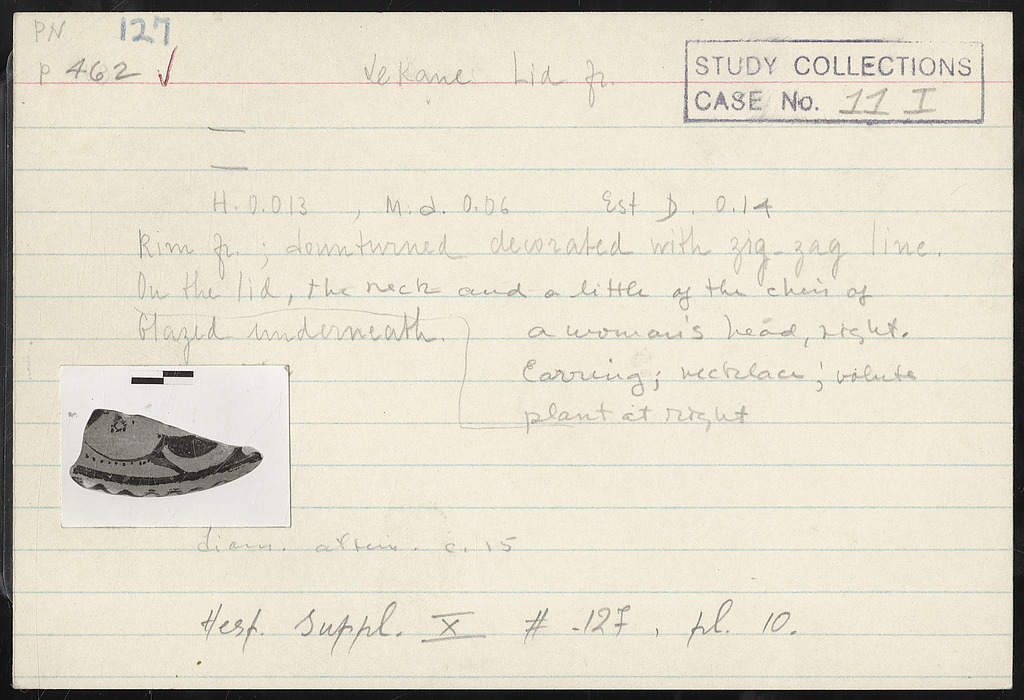 PN 127
P 462 ✓ Lekane Lid fr.
STUDY COLLECTIONS
CASE No. 11 I
H. 0.013, M.d. 0.06 Est D. 0.14
Rim fr.; downturned decorated with zig-zag line.
On the lid, the neck and a little of the chin of
a woman's head, right.
Earring; necklace; volute
plant at right
Glazed underneath.
diam. c. 15
Hesp. Suppl. X # 127, pl. 10.